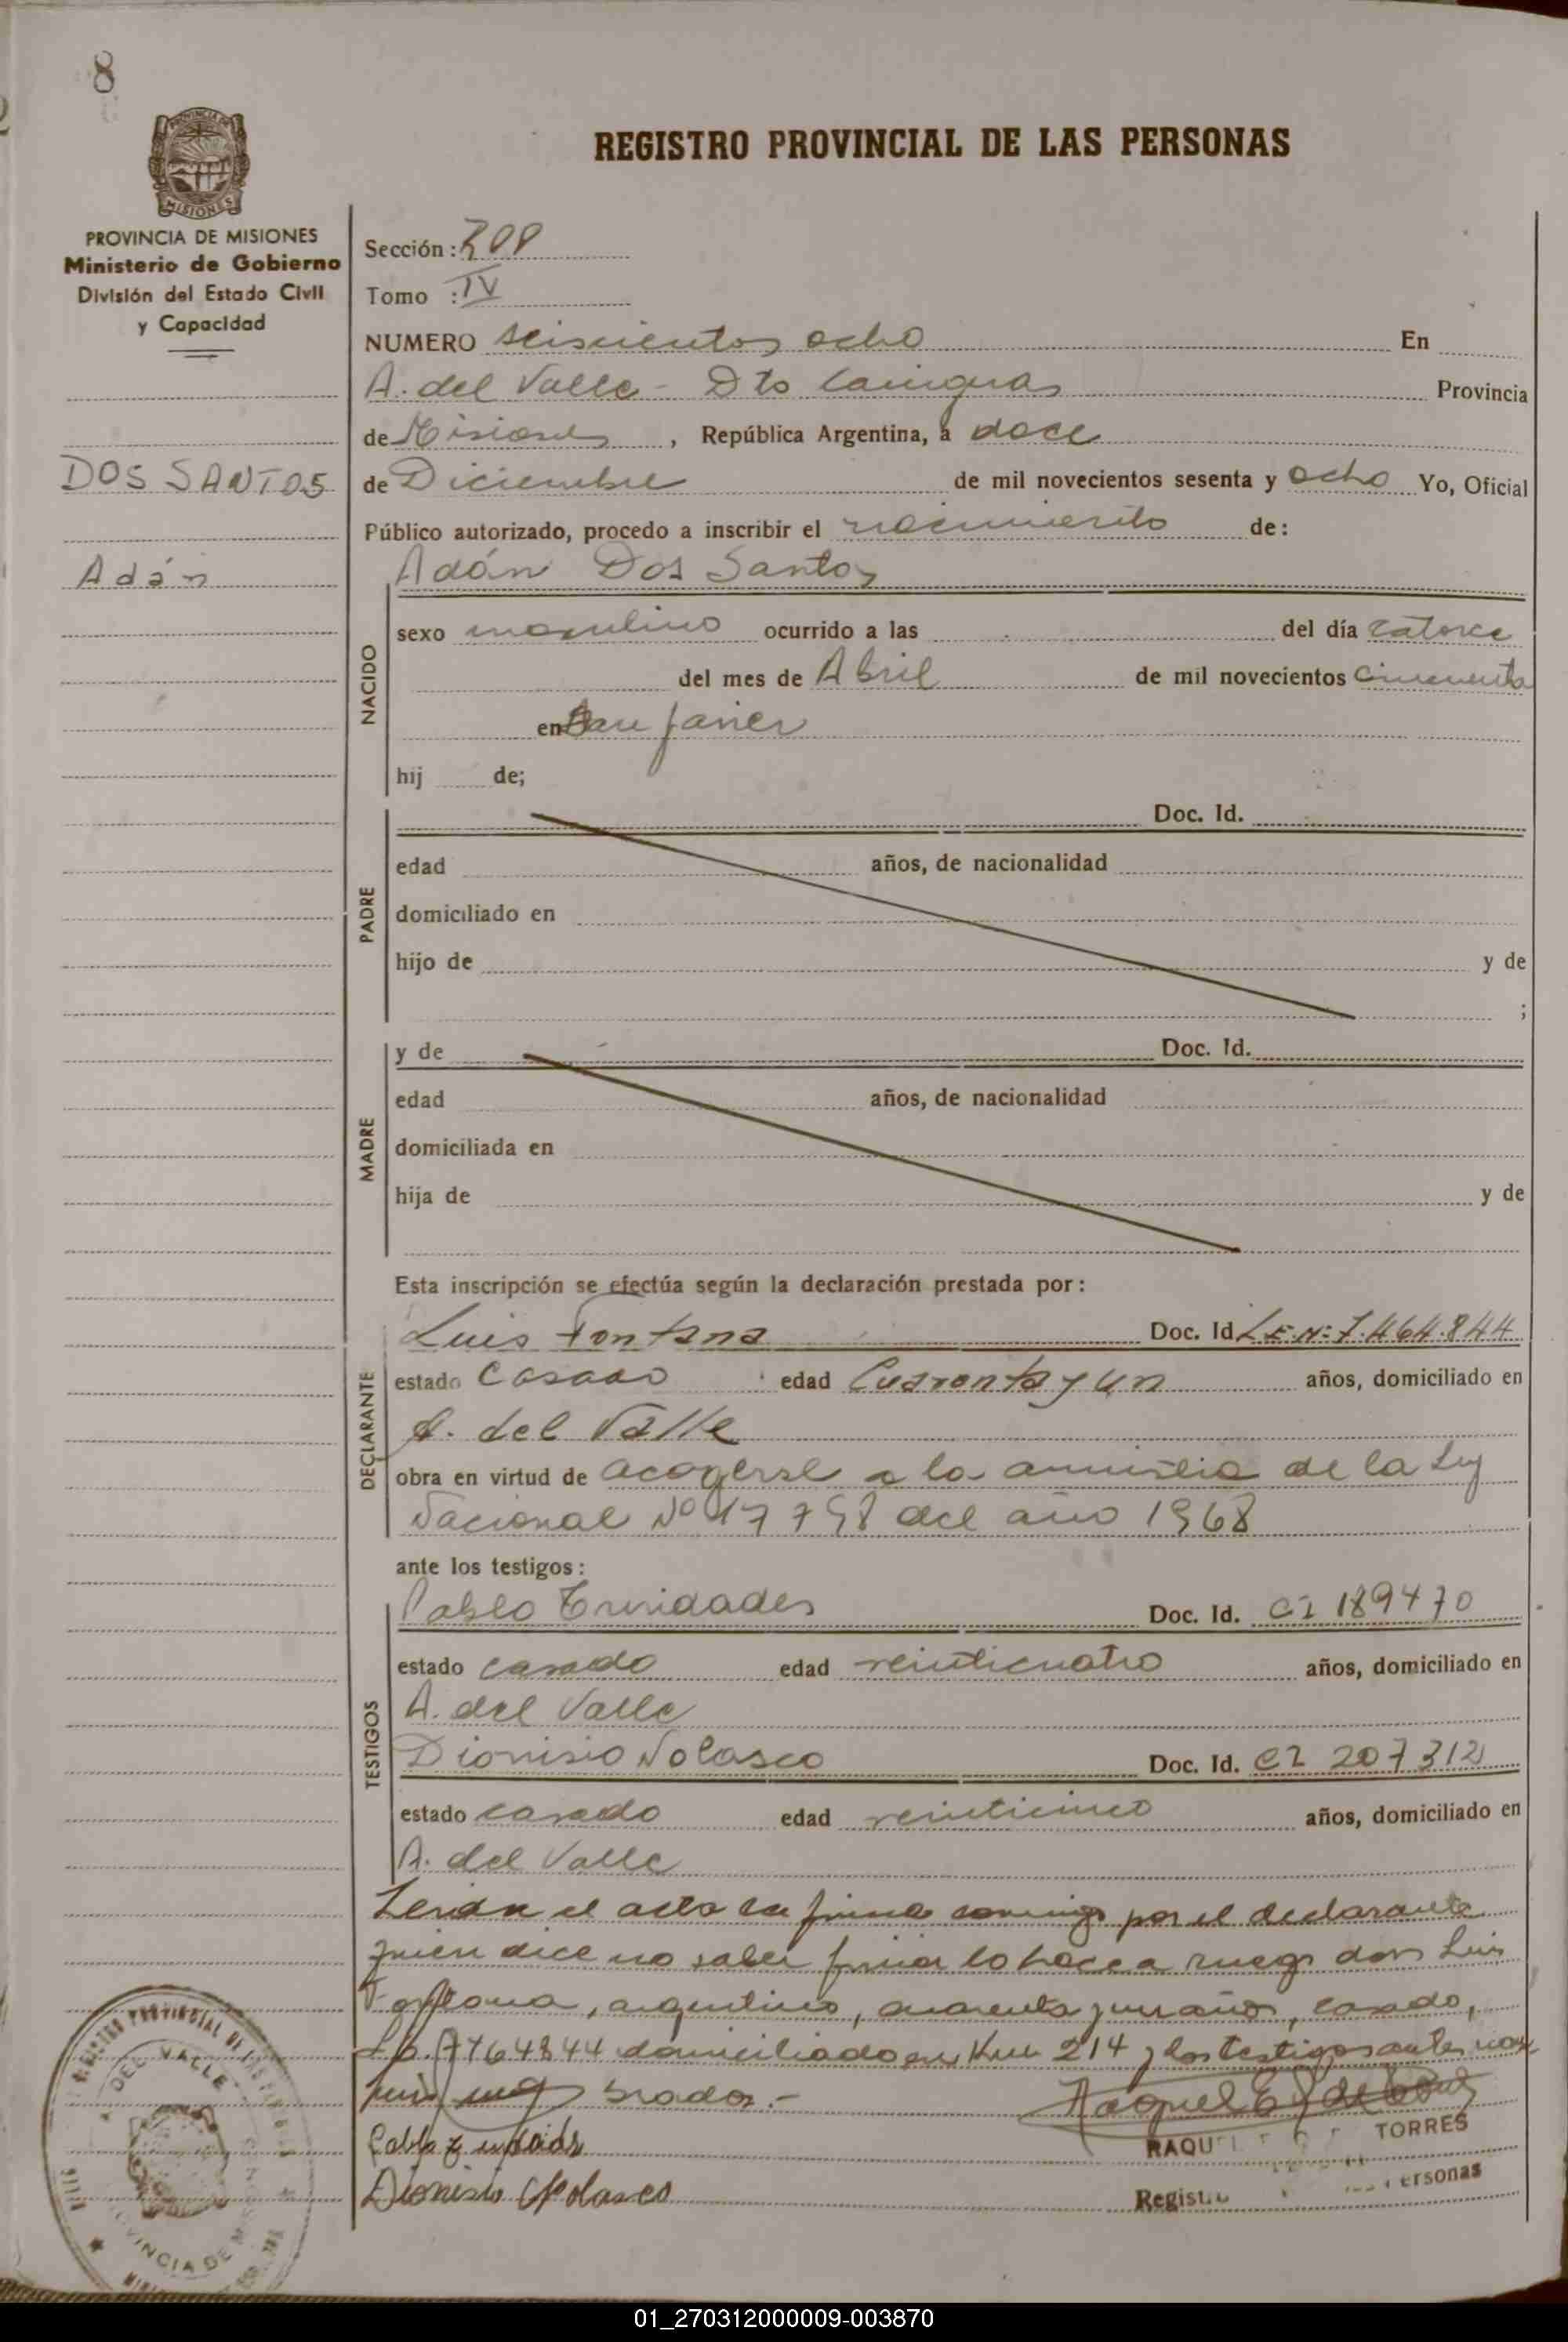 8
REGISTRO PROVINCIAL DE LAS PERSONAS
PROVINCIA DE MISIONES
Ministerio de Gobierno
División del Estado Civil
y Capacidad
Sección:
Tomo : IV
NUMERO seiscientos ocho En
A. del Valle - Dto Cainguas Provincia
de Misiones, República Argentina, a doce
DOS SANTOS
de Diciembre de mil novecientos sesenta y ocho Yo, Oficial
Público autorizado, procedo a inscribir el nacimiento de:
Adán
Adán Dos Santos
NACIDO
sexo masculino ocurrido a las del día catorce
del mes de Abril de mil novecientos cincuenta
en San Javier
hij de;
PADRE
Doc. Id.
edad años, de nacionalidad
domiciliado en
hijo de y de
;
MADRE
y de Doc. Id.
edad años, de nacionalidad
domiciliada en
hija de y de
Esta inscripción se efectúa según la declaración prestada por:
DECLARANTE
Luis Fontana Doc. Id L.E.Nº 7.464.844
estado Casado edad Cuarenta y un años, domiciliado en
A. del Valle
obra en virtud de acogerse a la amnistia de la Ley
Nacional Nº 17798 del año 1968
ante los testigos:
TESTIGOS
Pablo Trinidades Doc. Id. CI 189470
estado casado edad veinticuatro años, domiciliado en
A. del Valle
Dionisio Nolasco Doc. Id. CI 207312
estado casado edad veinticinco años, domiciliado en
A. del Valle
el acta la firma conmigo por el declarante
quien dice no saber firmar lo hace a ruego don Luis
Fontana, argentino, cuarenta y un años, casado,
7464844 domiciliado en Km 214 y los testigos antes nom
brados.-
TORRES
Dionisio Nolasco
Personas
DEL VALLE
01_270312000009-003870